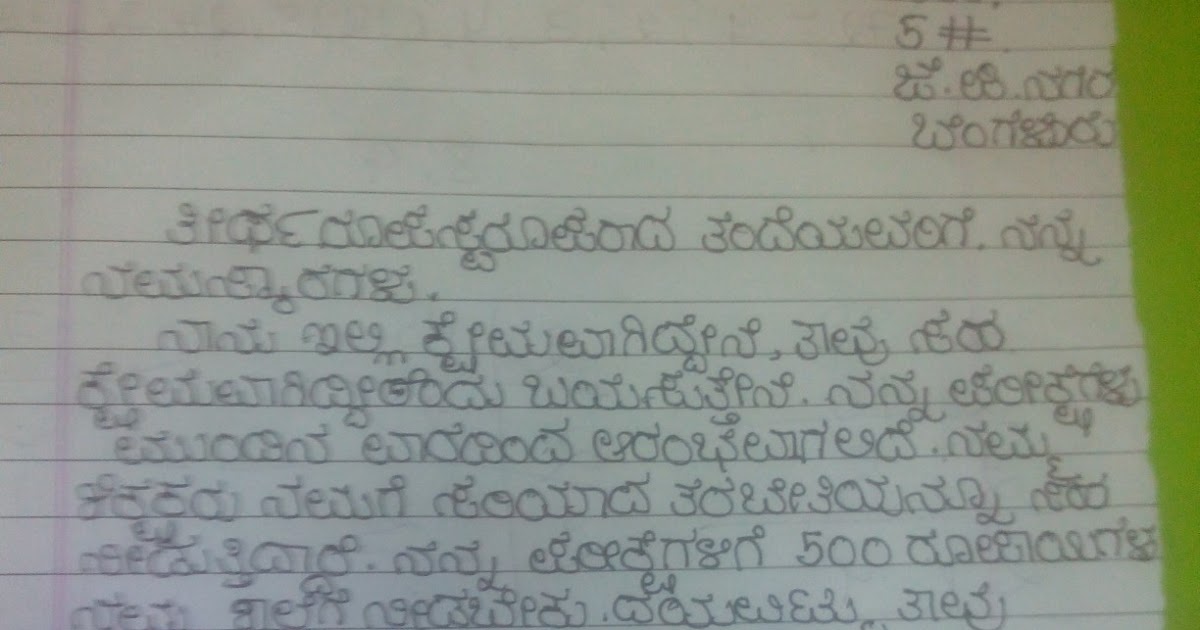 5#
ಜೆ.ಪಿ.ನಗರ
ಬೆಂಗಳೂರು
ತೀರ್ಥ ರೂಪ ತಂದೆಯವರಿಗೆ. ನನ್ನ
ನಮಸ್ಕಾರಗಳು.
ನಾನು ಇಲ್ಲಿ ಕ್ಷೇಮವಾಗಿದ್ದೇನೆ, ತಾವು ಸಹ
ಕ್ಷೇಮವಾಗಿದ್ದೀರೆಂದು ಬಯಸುತ್ತೇನೆ. ನನ್ನ ಪರೀಕ್ಷೆಗಳು
ಮುಂದಿನ ವಾರದಿಂದ ಆರಂಭವಾಗಲಿದೆ. ನಮ್ಮ
ಶಿಕ್ಷಕರು ನಮಗೆ ಸರಿಯಾದ ತರಬೇತಿಯನ್ನು ಸಹ
ನೀಡುತ್ತಿದ್ದಾರೆ. ನನ್ನ ಪರೀಕ್ಷೆಗಳಿಗೆ 500 ರೂಪಾಯಿಗಳು
ನಮ್ಮ ಶಾಲೆಗೆ ನೀಡಬೇಕು. ದಯವಿಟ್ಟು ತಾವು